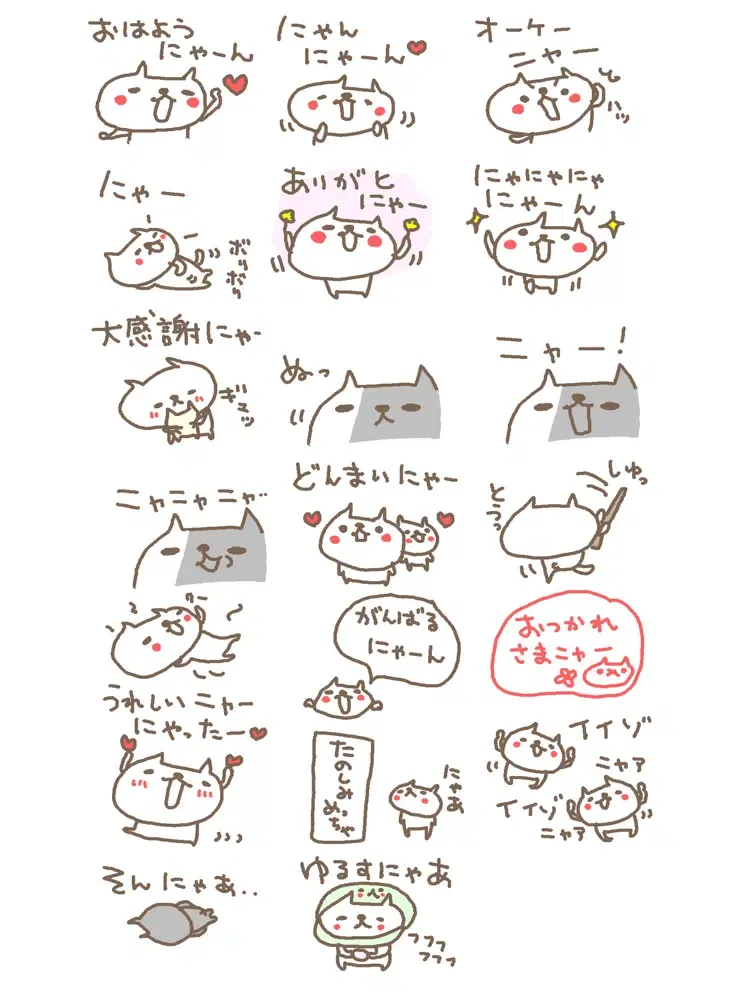 おはよう
にゃーん
にゃん
にゃーん
オーケー
ニャー
ハッ
にゃー
ボリ
ボリ
ありがと
にゃー
にゃにゃにゃ
にゃーん
大感謝にゃー
ギュッ
ぬっ
ニャー!
ニャニャニャ
どんまいにゃー
とうっ
しゅっ
がんばる
にゃーん
おっかれ
さまニャー
うれしいニャー
にゃったー
たのしみ
めっちゃ
にゃあ
イイゾ
ニャア
イイゾ
ニャア
そんにゃあ..
ゆるすにゃあ
フフフ
フフフ